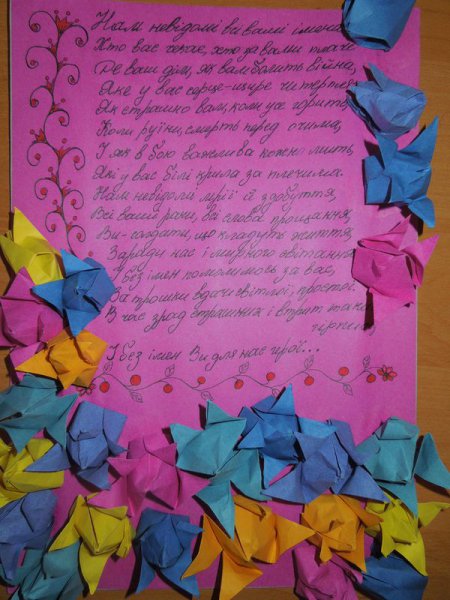 Нам невідомі всі ваші імена
Хто вас чекає, хто за вами плаче
Де ваш дім, як вам болить війна,
Яке у вас серце - щире чи
Як страшно вам, коли усе горить,
Коли руїни, смерть перед очима,
І як в бою важлива кожна мить,
Які у вас білі крила за плечима.
Нам невідомі мрії й здобуття,
Всі ваші рани, всі слова прощання,
Ви - солдати, що кладуть життя,
Заради нас і мирного світання
І без імен помолимось за вас,
За трошки вдачі світлої, простої.
В час зрад страшних і втрат
І без імен Ви для нас герої...